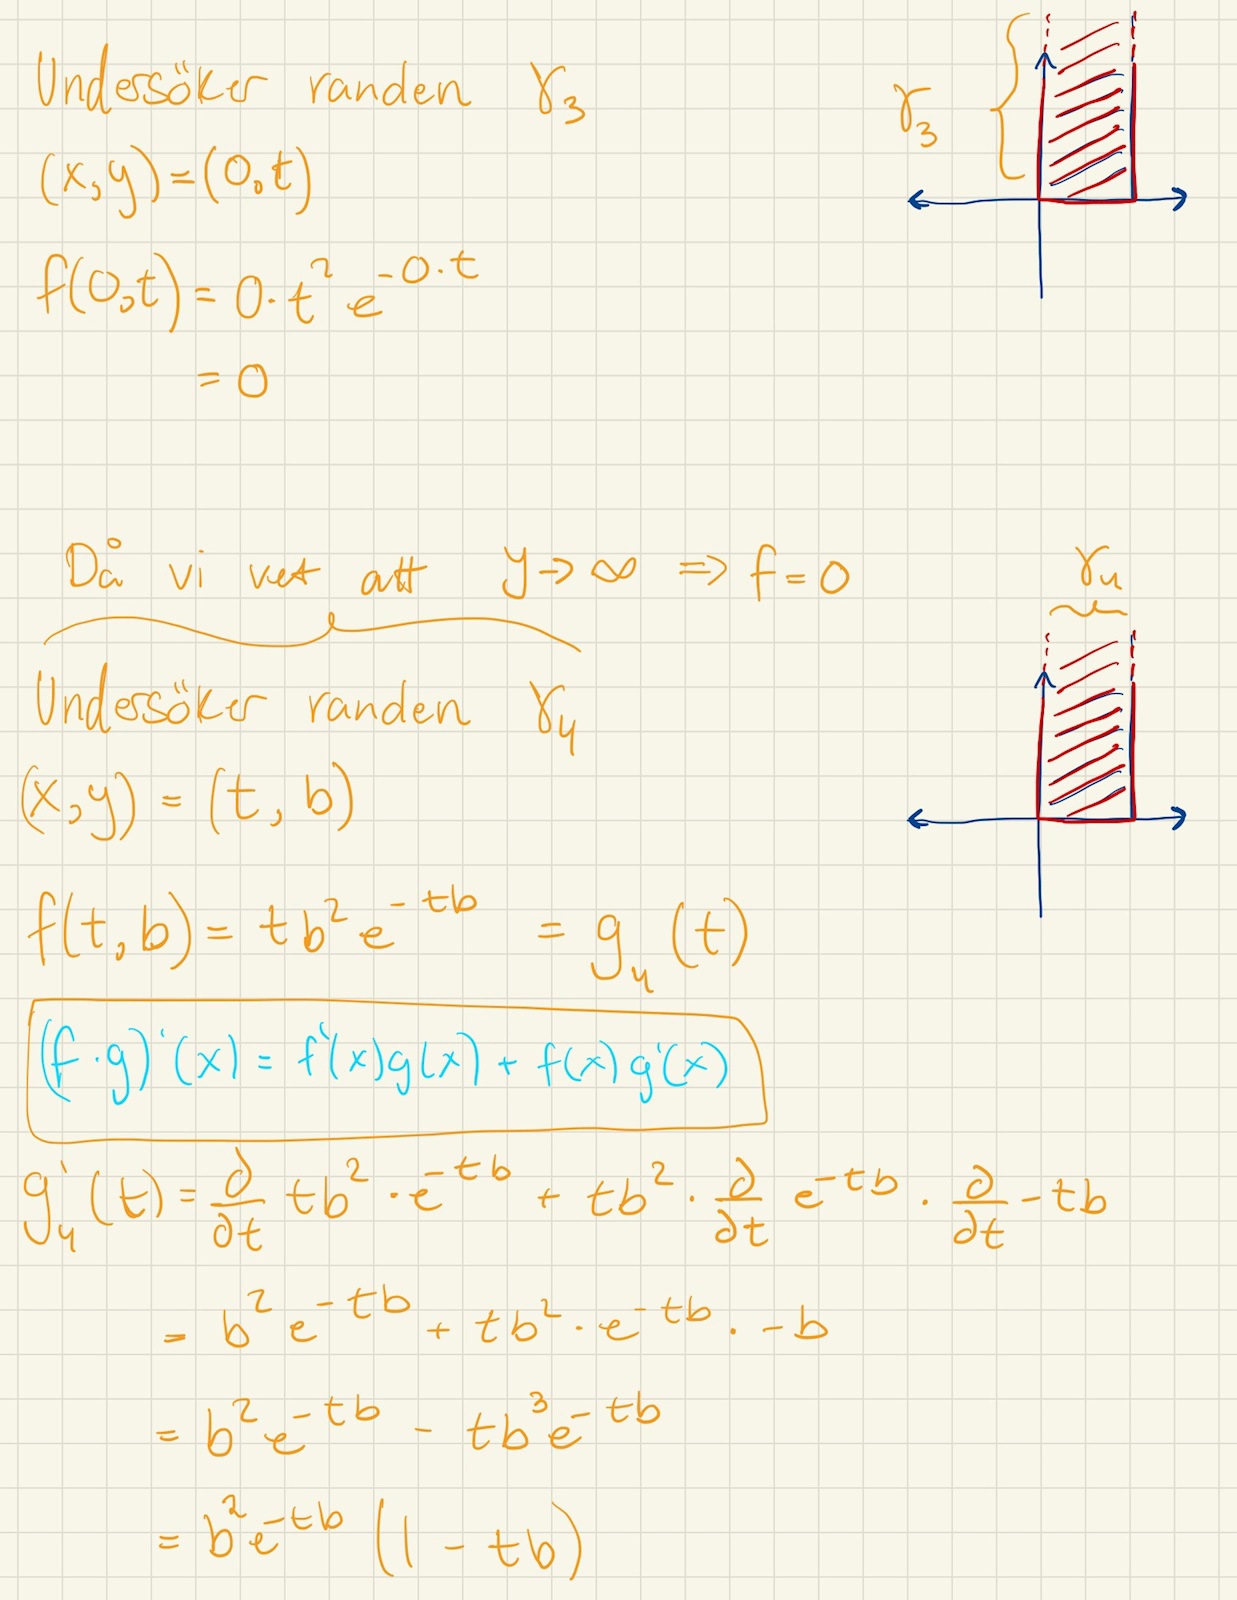 Undersöker randen γ₃
γ₃
(x,y)=(0,t)
f(0,t) = 0·t² e^{-0·t}
= 0
Då vi vet att y→∞ ⇒ f=0
γ₄
Undersöker randen γ₄
(x,y) = (t, b)
f(t,b) = tb² e^{-tb} = g₄(t)
(f·g)'(x) = f'(x)g(x) + f(x)g'(x)
g₄'(t) = ∂/∂t tb² · e^{-tb} + tb² · ∂/∂t e^{-tb} · ∂/∂t -tb
= b² e^{-tb} + tb² · e^{-tb} · -b
= b² e^{-tb} - tb³ e^{-tb}
= b² e^{-tb} (1 - tb)